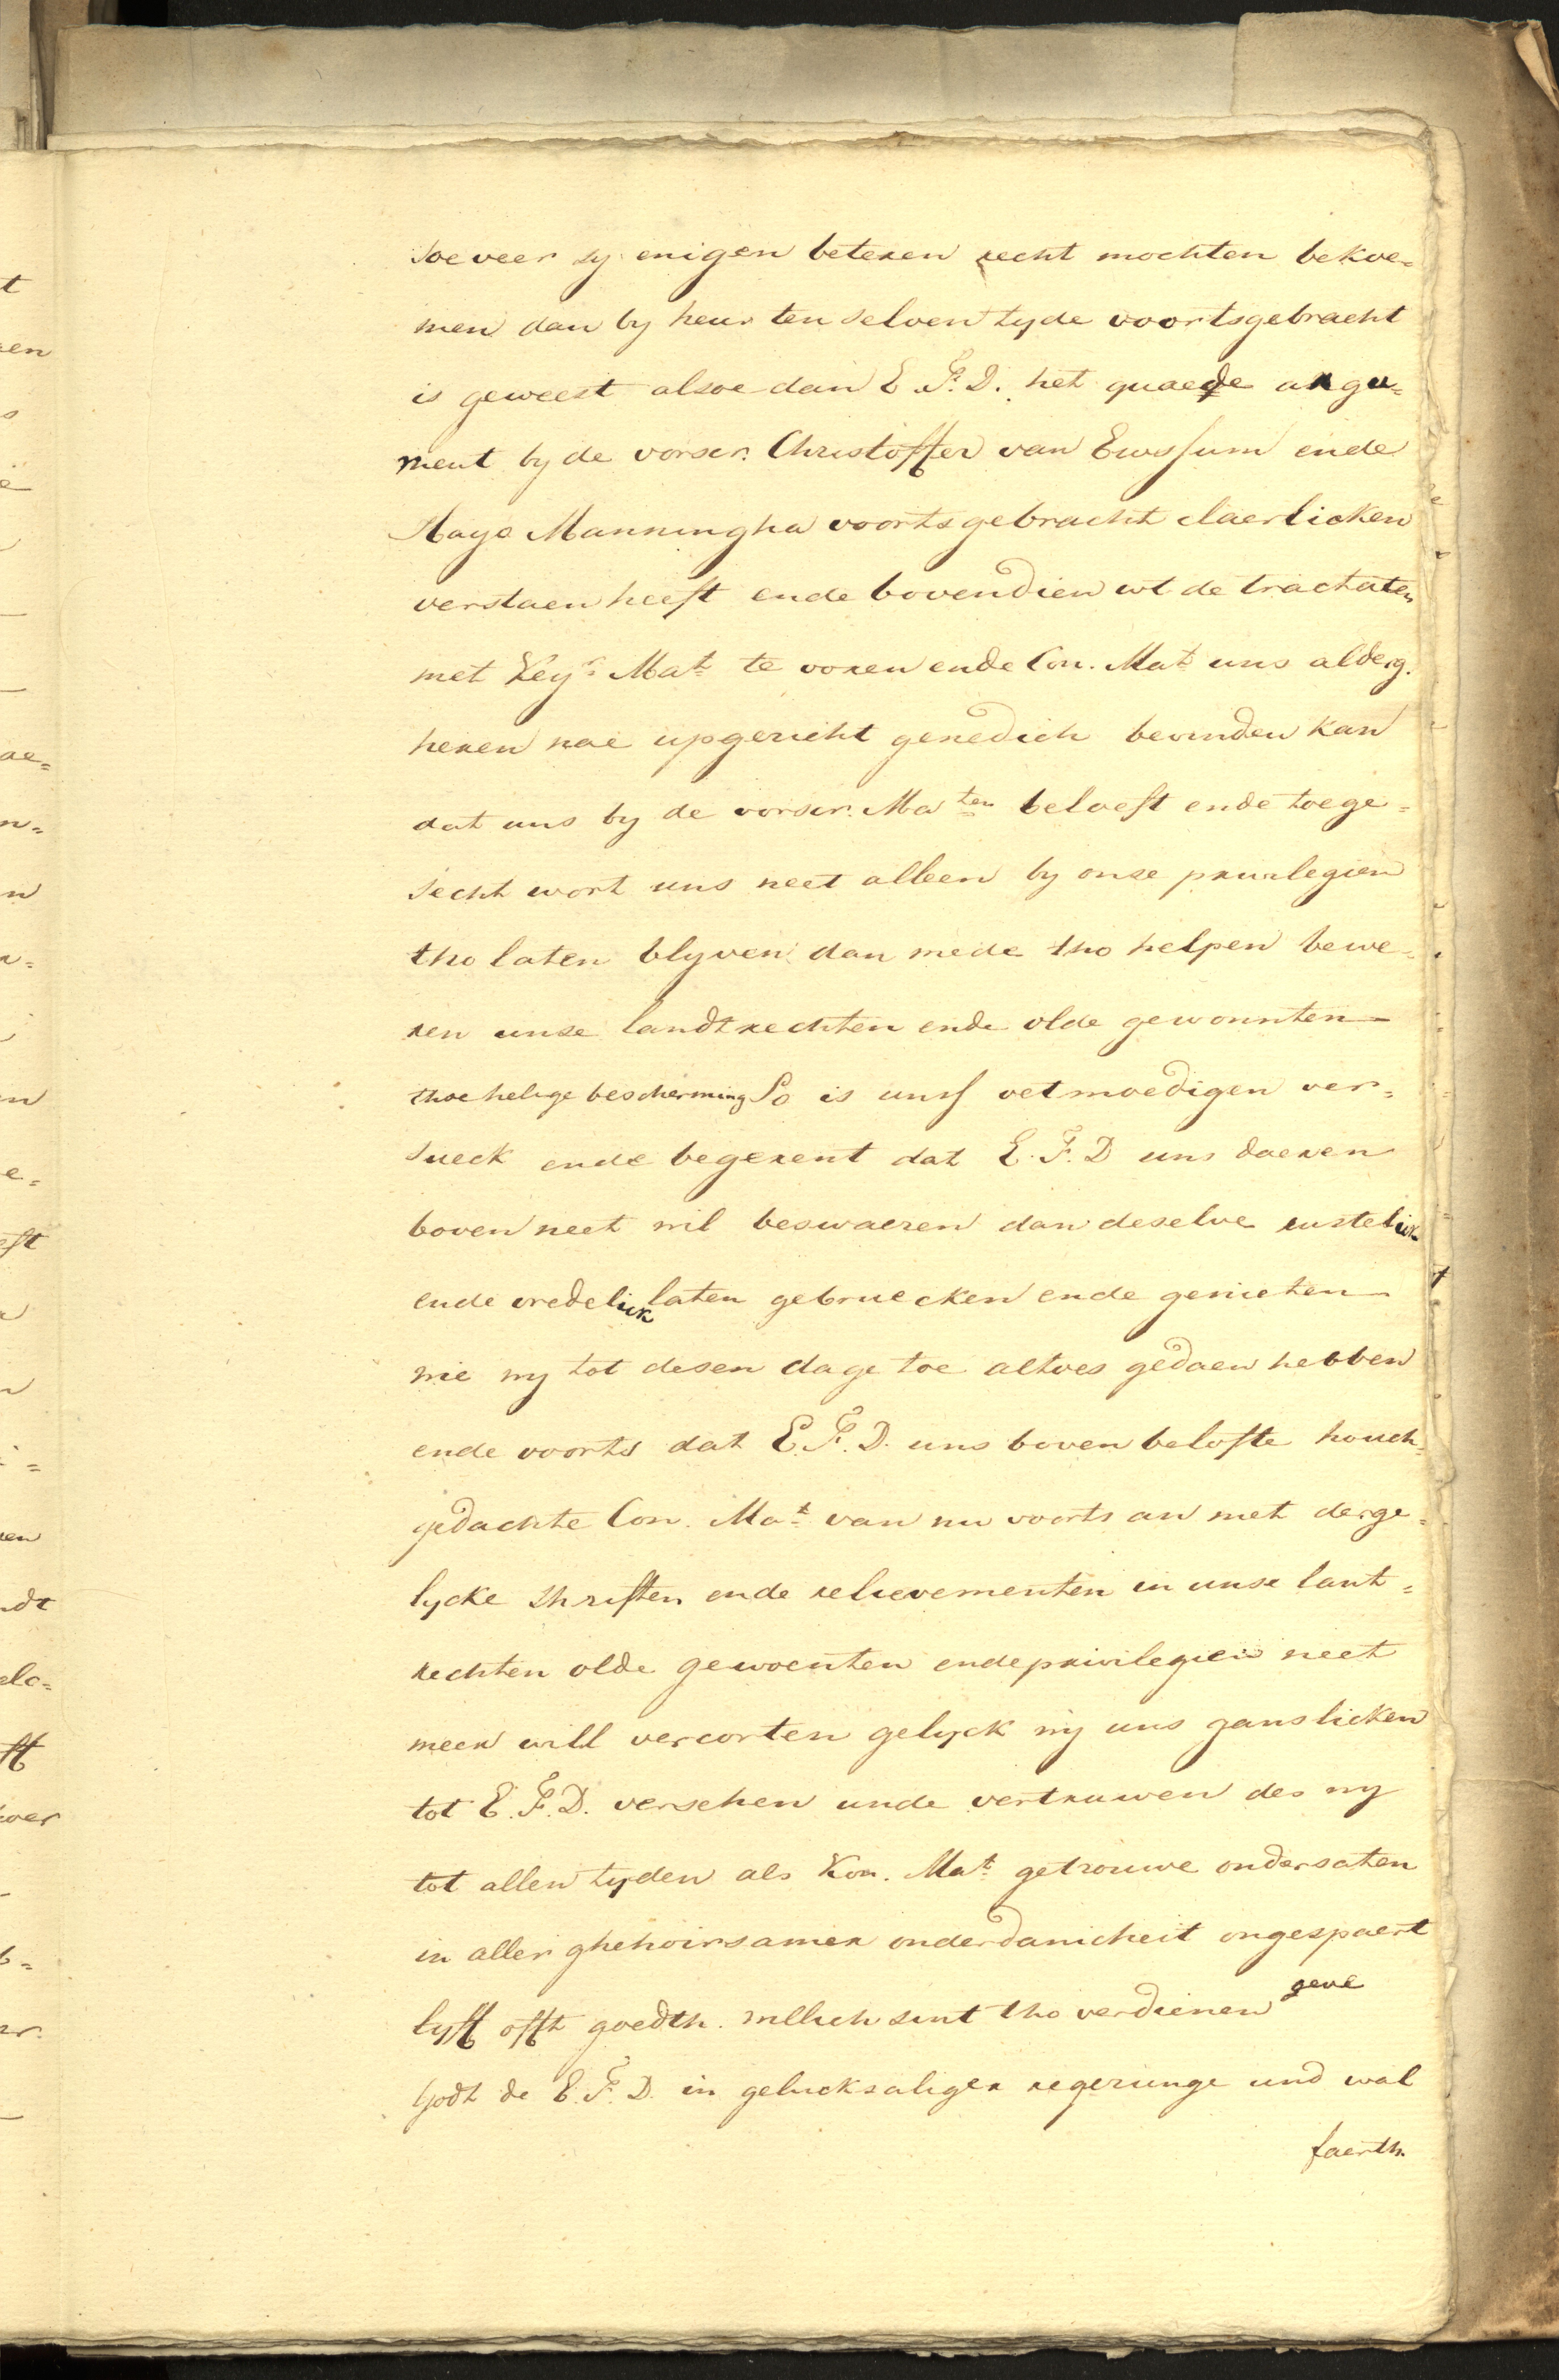 soe veer sy enigen beteren recht mochten bekoe=
men dan by heur ten selven tyde voortsgebracht
is geweest alsoe dan E. F. D. het quaede argu=
ment by de vorscr. Christoffer van Ewssum ende
Hayo Manningha voortsgebracht claerlicken
verstaen heeft ende bovendien wt de tractaten
met Keyr. Mat. te voren ende Con. Mat. uns alderg.
heren nae upgericht genedich bevinden kan
dat uns by de vorscr. Ma ten beloeft ende toege=
secht wort uns neet alleen by onse privilegien
tho laten blyven dan mede tho helpen bewe=
ren unse landtrechten ende olde gewonnten
thoe helige bescherming So is uns oetmoedigen ver=
sueck ende begerent dat E. F. D uns daeren
boven neet wil beswaeren dan deselve rusteliek
ende vredeliek laten gebruecken ende genieten
wie wy tot desen dage toe altoes gedaen hebben
ende voorts dat E. F. D. uns boven belofte houch=
gedachte Con. Mat. van nu voorts an met derge=
lycke shriften ende relievementen in unse lant=
rechten olde gewoenten ende privilegien neet
meer will vercorten gelyck wy uns ganslicken
tot E. F. D. versehen unde vertruwen des wy
tot allen tyden als Kon. Mat. getrouwe ondersaten
in aller ghehoirsamer onderdanicheit ongespaert
lyff offt goedth. willich sint tho verdienen geve
Godt de E. F. D. in gelucksaliger regerunge und wal
faerth.